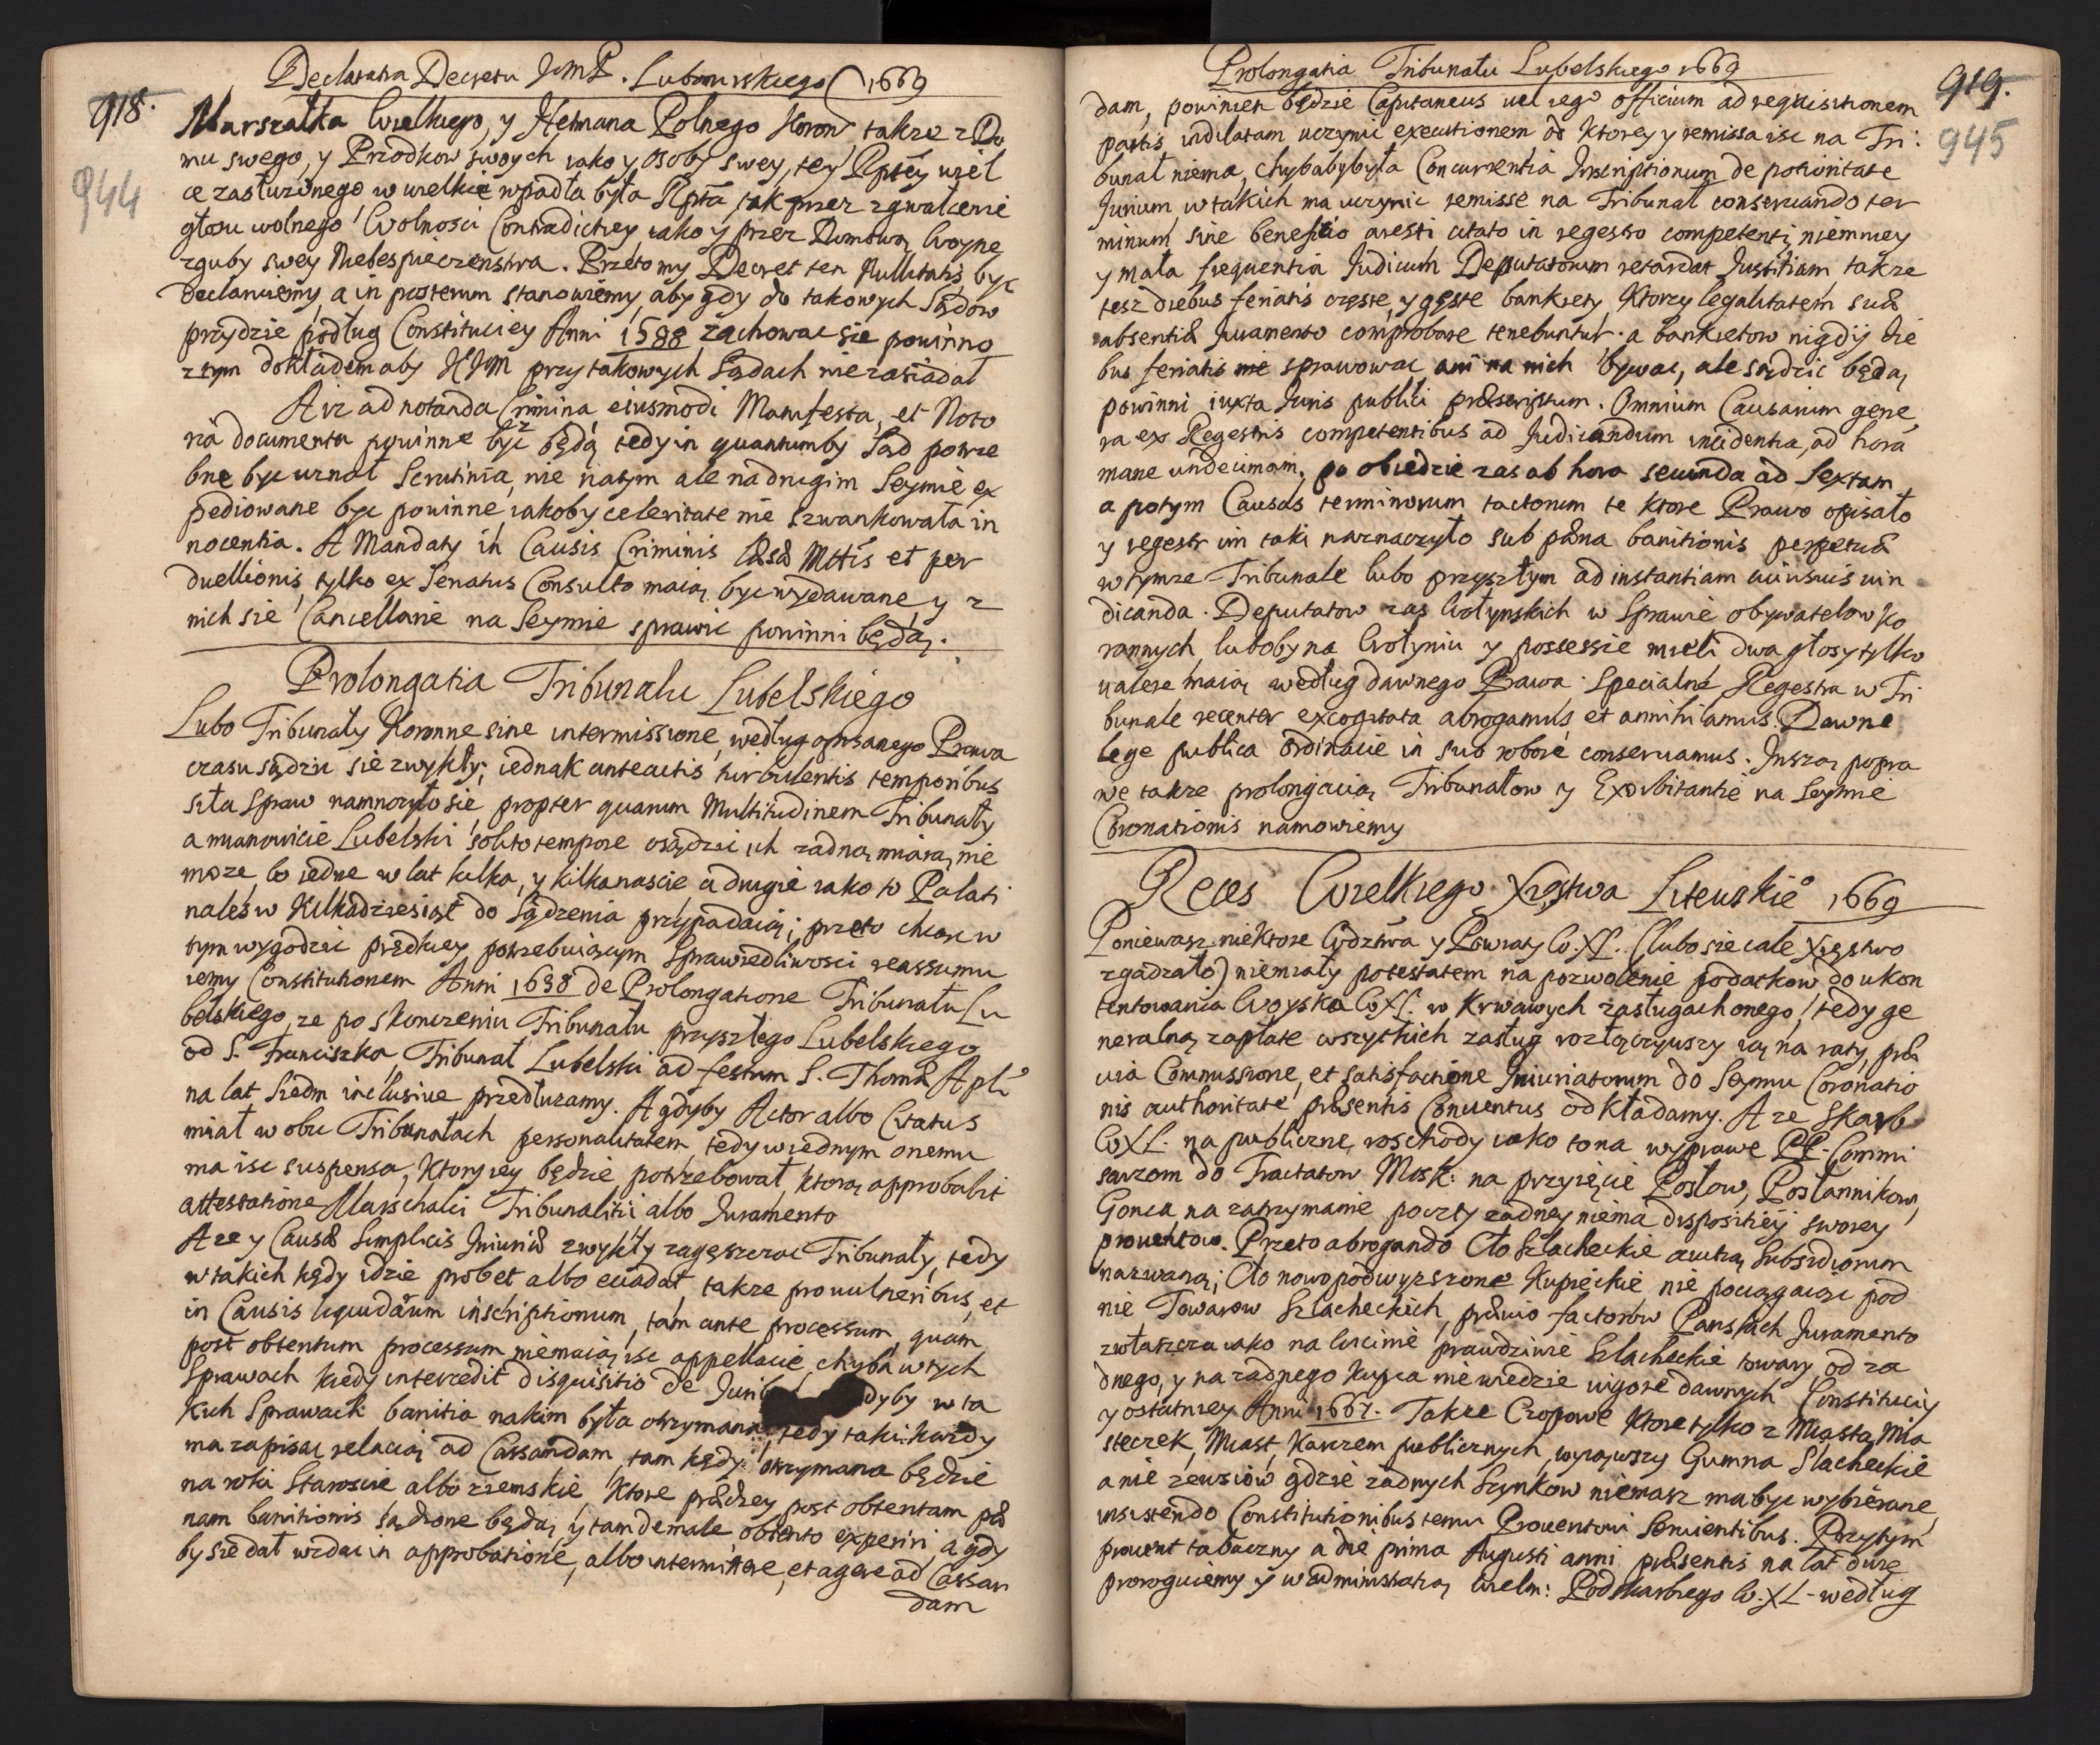 Declaratia Decretu JmP. Lubomirskiego 1669
918.
944
Marszałka Wielkiego, y Hetmana Polnego Koron: także z Do
mu swego, y Przodkow swoych iako y osoby swey, tey Rptey wiel
ce zasłużonego w wielkie wpadła była Rpta, tak przez zgwałcenie
głosu wolnego Wolnosci Contradictiey iako y przez Domową Woynę
zguby swey Niebespieczenstwa. Przeto my Decret ten Nullitatis byc
declaruiemy, a in posterum stanowiemy, aby gdy do takowych Sądow
przydzie podług Constituciey Anni 1588 zachowac sie powinno
z tym dokładem aby KJM przy takowych Sądach nie zasiadał
A iz ad notanda Crimina eiusmodi Manifesta, et Noto
ria documenta powinne byc będą tedy in quantumby Sąd potrze
bne byc uznał Scrutinia, nie na tym ale na drugim Seymie ex
pediowane byc powinne, iakoby celeritate nie szwankowała in
nocentia. A Mandaty in Causis Criminis læsæ Mttis et per
duellionis, tylko ex Senatus Consulto maią byc wydawane, y z
nich sie Cancellarie na Seymie sprawic powinni będą.
Prolongatia Tribunału Lubelskiego
Lubo Tribunały Koronne sine intermissione, według opisanego Prawa
czasu sądzic sie zwykły; iednak anteactis turbulentis temporibus
siła Spraw namnozyło sie, propter quarum Multitudinem Tribunały
a mianowicie Lubelski solito tempore osądzic ich zadną miarą nie
moze, bo iedne w lat kilka, y kilkanascie a drugie iako to Palati
nales w Kilkadziesiąt do Sądzenia przypadaią; przeto chcąc w
tym wygodzic prędkiey potrzebuiącym Sprawiedliwosci reassumu
iemy Constitutionem Anni 1638 de Prolongatione Tribunału Lu
belskiego, ze po skonczeniu Tribunału przyszłego Lubelskiego
od S. Franciszka, Tribunał Lubelski ad festum S. Thomæ Apli
na lat Siedm inclusive przedłuzamy. A gdyby Actor albo Citatus
miał w obu Tribunałach personalitatem, tedy w iednym onemu
ma isc suspensa, Ktory iey będzie potrzebował, ktorą approbabit
attestatione Marschalci Tribunalitii albo Juramento
A ze y Causæ Simplicis Iniuriæ zwykły zagęszczac Tribunały, tedy
w takich kędy idzie probet albo evadat, takze pro vulneribus, et
in Causis liquidarum inscriptionum, tam ante processum, quam
post obtentum processum nie maią isc appellacie, chyba w tych
Sprawach kiedy intercedit disquisitio de Juri dyby w ta
kich Sprawach banitia na kim była otrzymana, tedy taki kazdy
ma zapisac relacią ad Cassandam, tam kędy otrzymana będzie
na roki Staroscie albo ziemskie Ktore prędzey post obtentam pæ
nam banitionis sądzone będą, y tam de male obtento experiri a gdy
by sie dał widac in approbatione, albo intermittere, et agere ad Cassan
dam
Prolongatia Tribunału Lubelskiego 1669
919.
945
dam, powinien będzie Capitaneus vel iego officium ad requisitionem
partis indilatam uczynic executionem od Ktorey y remissa isc na Tri:
bunał niema, chybaby była Concurrentia Inscriptionum de potioritate
Jurium w takich ma uczynic remisse na Tribunał conseruando ter
minum sine beneficio aresti citato in regestro competenti, niemniey
y mała frequentia Judicum Deputatorum retardat Justitiam, takze
tesz diebus feriatis częste, y gęste bankiety, Ktorzy legalitatem suæ
absentiæ Juramento comprobare tenebuntur. a bankietow nigdy die
bus feriatis nie sprawowac ani na nich bywac, ale sądzic będą
powinni iuxta Juris publici præscriptum. Omnium Causarum gene
ra ex Regestris competentibus ad Judicandum incidentia, ad hora
mane undecimam, po obiedzie zas ab hora secunda ad Sextam
a potym Causas terminorum tactorum te ktore Prawo opisało
y regestr im taki naznaczyło sub pæna banitionis perpetuæ
w tymze Tribunale lubo przyszłym ad instantiam cuiusuis vin
dicanda. Deputatow zas Wołynskich w Sprawie obywatelow Ko
ronnych lubo by na Wołyniu y possessie mieli dwa głosy tylko
valere maią według dawnego Prawa. Specialne Regestra w Tri
bunale recenter excogitata abrogamus, et annihilamus. Dawne
lege publica ordinacie in suo robore conseruamus. Inszą popra
we takze prolongacią Tribunałow y Exorbitantie na Seymie
Coronationis namowiemy
Reces Wielkiego Xięstwa Litewskieo 1669
Poniewasz niektore Wdztwa y Powiaty W.X.L. (lubo sie całe Xięstwo
zgadzało) niemiały potestatem na pozwolenie podatkow do ukon
tentowania Woyska WXL. w Krwawych zasługach onego, tedy ge
neralną zapłate wszytkich zasług rozłączywszy ią na raty, præ
via Commissione, et satisfactione Iniuriatorum do Seymu Coronatio
nis authoritate præsentis Conventus odkładamy. A ze Skarb
WXL. na publiczne roschody iako to na wyprawe PP. Commi
sarzom do Tractatow Mosk: na przyięcie Posłow, Posłannikow,
Gonca na zatrzymanie poczty zadney niema dispositiey swoiey
prouentow. Przeto abrogando Cło Szlacheckie auctią Subsidiorum
nazwaną; Cło nowo podwyzszone Kupieckie nie pociągaiąc pod
nie Towarow Szlacheckich, prævio factorow Panskich Juramento
zwłaszcza iako na Wicinie prawdziwie Szlacheckie towary, od za
dnego, y na zadnego kupca nie wiedzie vigore dawnych Constituciy
y ostatniey Anni 1667. Takze Czopowe Ktore tylko z Miasta, Mia
steczek, Miast, Karczem publicznych, wyiąwszy Gumna Slacheckie
a nie zewsiow gdzie zadnych Szynkow niemasz ma byc wybierane,
insistendo Constitutionibus temu Prouentowi Seruientibus. Przytym
prouent tabaczny a die prima Augusti anni præsentis na lat dwie
proroguiemy y w administratią Wielm: Podskarbiego W.X.L. według